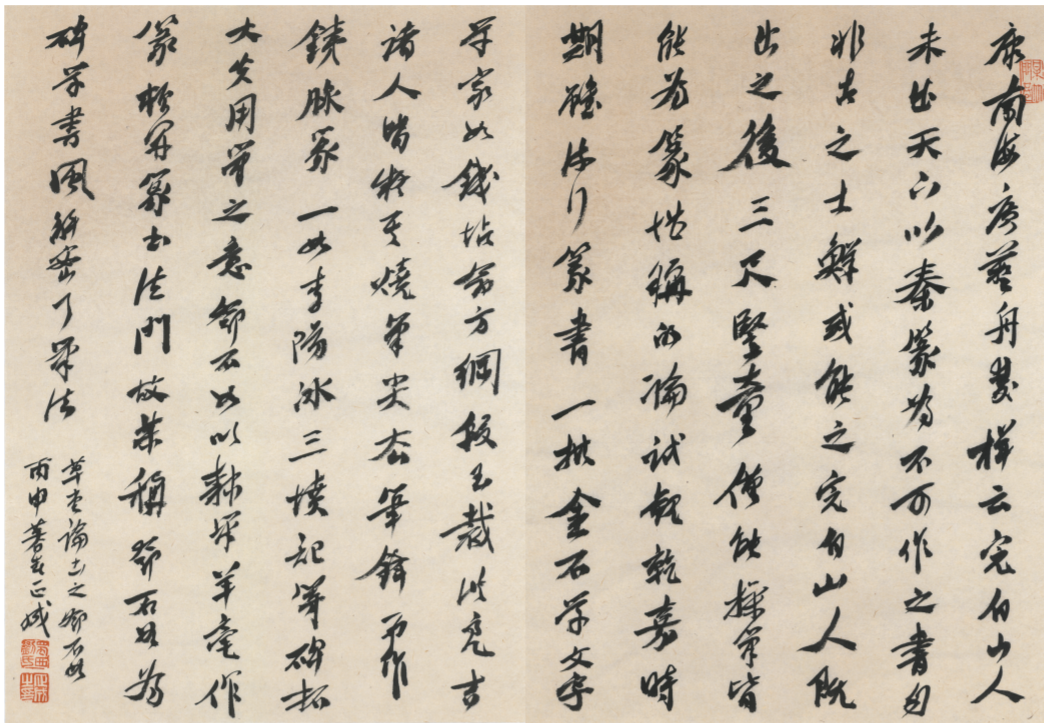 康南海廣藝舟雙楫云完白山人
未出天下以秦篆为不可作之書自
非古之士鮮或能之完白山人既
出之後三尺竪童僅能操筆皆
能为篆堪稱的論試觀乾嘉時
期雖流行篆書一批金石学文字
学家如錢坫翁方綱段玉裁洪亮吉
諸人皆將毛燒筆尖去筆鋒而作
鐵線篆一如李陽冰三墳記等碑拓
大失用筆之意鄧石如以隸筆羊毫作
篆始開篆書法門故稱鄧石如为
碑学書風解密了筆法
草書論書之鄧石如
丙申暮春正城